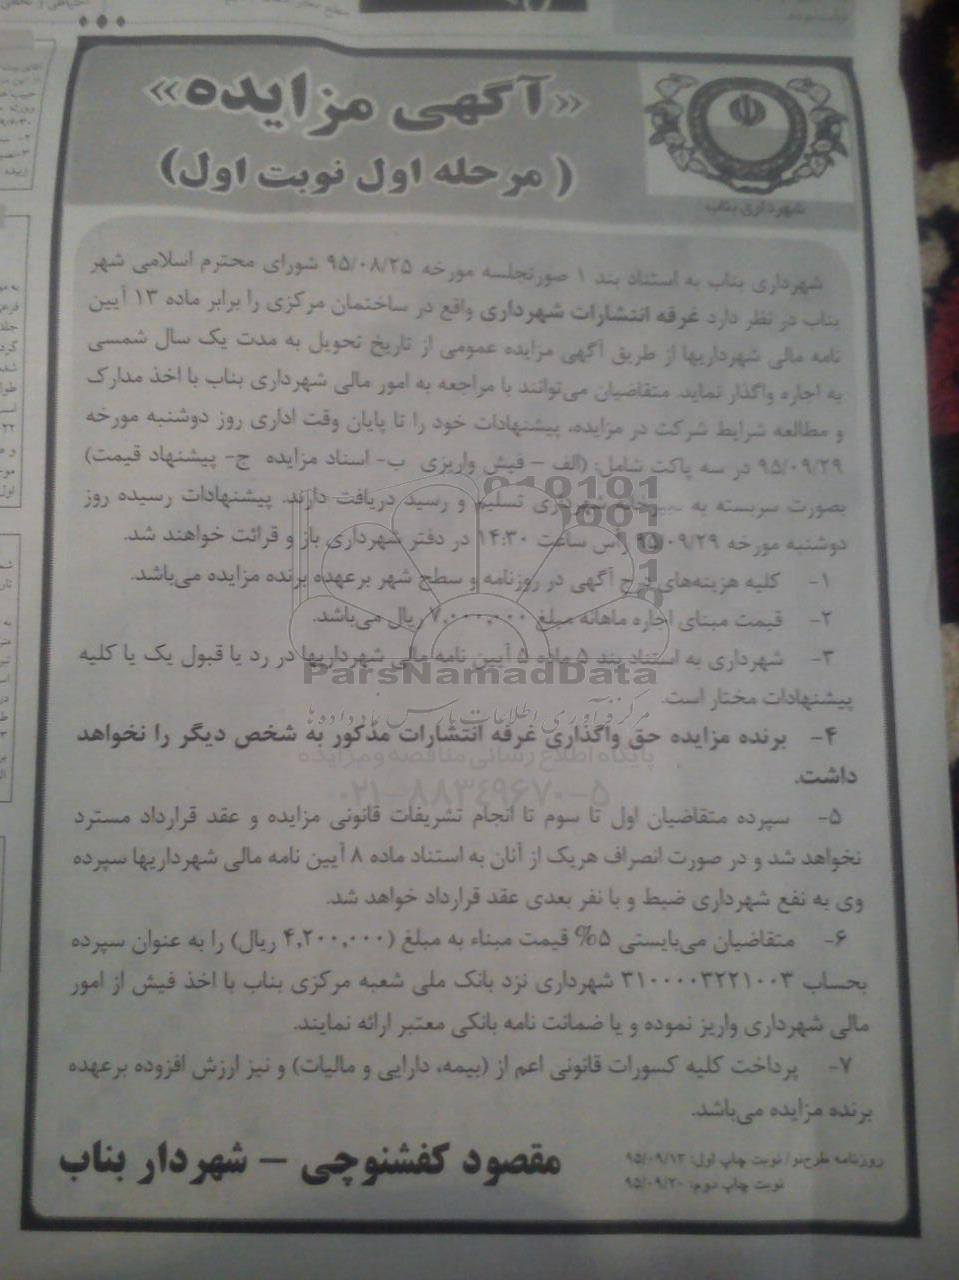 «آگهی مزایده»
(مرحله اول نوبت اول)
شهرداری بناب
شهرداری بناب به استناد بند ۱ صورتجلسه مورخه ۹۵/۰۸/۲۵ شورای محترم اسلامی شهر
بناب در نظر دارد غرفه انتشارات شهرداری واقع در ساختمان مرکزی را برابر ماده ۱۳ آیین
نامه مالی شهرداریها از طریق آگهی مزایده عمومی از تاریخ تحویل به مدت یک سال شمسی
به اجاره واگذار نماید. متقاضیان می‌توانند با مراجعه به امور مالی شهرداری بناب با اخذ مدارک
و مطالعه شرایط شرکت در مزایده، پیشنهادات خود را تا پایان وقت اداری روز دوشنبه مورخه
۹۵/۰۹/۲۹ در سه پاکت شامل: (الف – فیش واریزی ب- اسناد مزایده ج- پیشنهاد قیمت)
بصورت سربسته به شهرداری تسلیم و رسید دریافت دارند. پیشنهادات رسیده روز
دوشنبه مورخه ۹۵/۰۹/۲۹ رأس ساعت ۱۴:۳۰ در دفتر شهرداری باز و قرائت خواهند شد.
۱- کلیه هزینه‌های درج آگهی در روزنامه و سطح شهر برعهده برنده مزایده می‌باشد.
۲- قیمت مبنای اجاره ماهانه مبلغ ۷,۰۰۰,۰۰۰ ریال می‌باشد.
۳- شهرداری به استناد بند ۵ ماده ۵ آیین نامه مالی شهرداریها در رد یا قبول یک یا کلیه
پیشنهادات مختار است.
۴- برنده مزایده حق واگذاری غرفه انتشارات مذکور به شخص دیگر را نخواهد
داشت.
۵- سپرده متقاضیان اول تا سوم تا انجام تشریفات قانونی مزایده و عقد قرارداد مسترد
نخواهد شد و در صورت انصراف هریک از آنان به استناد ماده ۸ آیین نامه مالی شهرداریها سپرده
وی به نفع شهرداری ضبط و با نفر بعدی عقد قرارداد خواهد شد.
۶- متقاضیان می‌بایستی ۵% قیمت مبناء به مبلغ (۴,۲۰۰,۰۰۰ ریال) را به عنوان سپرده
بحساب ۳۱۰۰۰۰۳۲۲۱۰۰۳ شهرداری نزد بانک ملی شعبه مرکزی بناب با اخذ فیش از امور
مالی شهرداری واریز نموده و یا ضمانت نامه بانکی معتبر ارائه نمایند.
۷- پرداخت کلیه کسورات قانونی اعم از (بیمه، دارایی و مالیات) و نیز ارزش افزوده برعهده
برنده مزایده می‌باشد.
روزنامه طرح‌نو/ نوبت چاپ اول: ۹۵/۰۹/۱۳
نوبت چاپ دوم: ۹۵/۰۹/۲۰
مقصود کفشنوچی – شهردار بناب
ParsNamadData
مرکز فرآوری اطلاعات پارس نماد داده ها
پایگاه اطلاع رسانی مناقصه و مزایده
۰۲۱-۸۸۳۴۹۶۷۰-۵